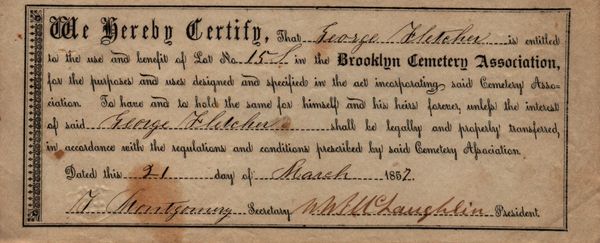 We Hereby Certify, That George Fletcher is entitled
to the use and benefit of Lot No. 15 in the Brooklyn Cemetery Association,
for the purposes and uses designed and specified in the act incorporating said Cemetery Asso-
ciation. To have and to hold the same for himself and his heirs forever, unless the interest
of said George Fletcher shall be legally and properly transferred,
in accordance with the regulations and conditions prescribed by said Cemetery Association.
Dated this 21 day of March 1857.
Montgomery Secretary W W McLaughlin President.